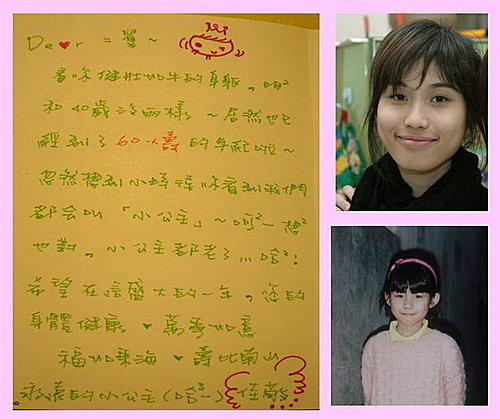 Dear = 鬟 ~
看你健壯如牛的身軀。明明
和40歲沒兩樣~居然也已
經到了60大壽的年紀啦~
忽然想到小時候你看到我們
都會叫「小公主」~呵呵一想想
也對。小公主都老了...哈哈!
希望在這盛大的一年。您的
身體健康 ♥ 萬事如意
福如東海 ♥ 壽比南山
永遠的小公主(哈 一) 佳